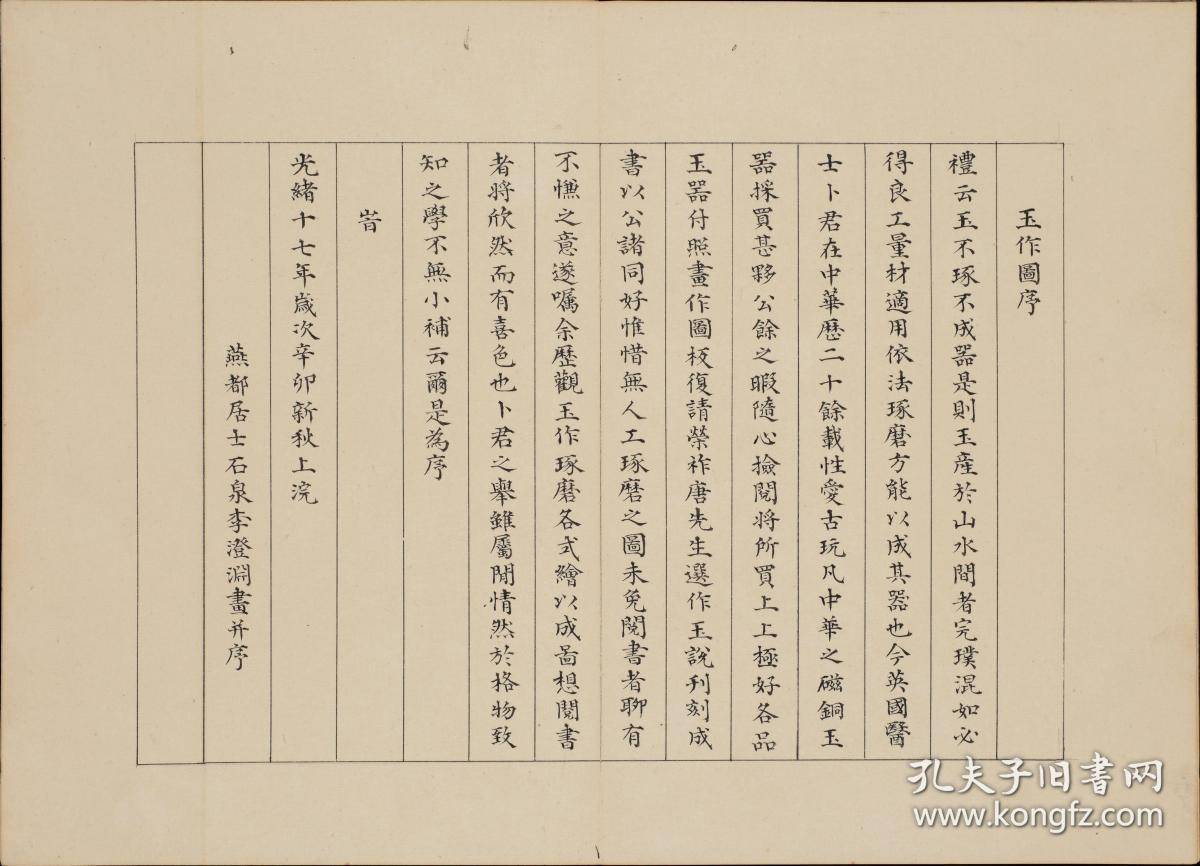 玉作圖序
禮云玉不琢不成器是則玉産於山水間者完璞混如必
得良工量材適用依法琢磨方能以成其器也今英國醫
士卜君在中華歷二十餘載性愛古玩凡中華之磁銅玉
器採買甚夥公餘之暇隨心撿閱將所買上上極好各品
玉器付照畫作圖板復請榮祚唐先生選作玉說刊刻成
書以公諸同好惟惜無人工琢磨之圖未免閱書者聊有
不慊之意遂囑余歷觀玉作琢磨各式繪以成啚想閱書
者將欣然而有喜色也卜君之舉雖屬閒情然於格物致
知之學不無小補云爾是為序
旹
光緒十七年歲次辛卯新秋上浣
燕都居士石泉李澄淵畫并序
孔夫子旧书网
www.kongfz.com